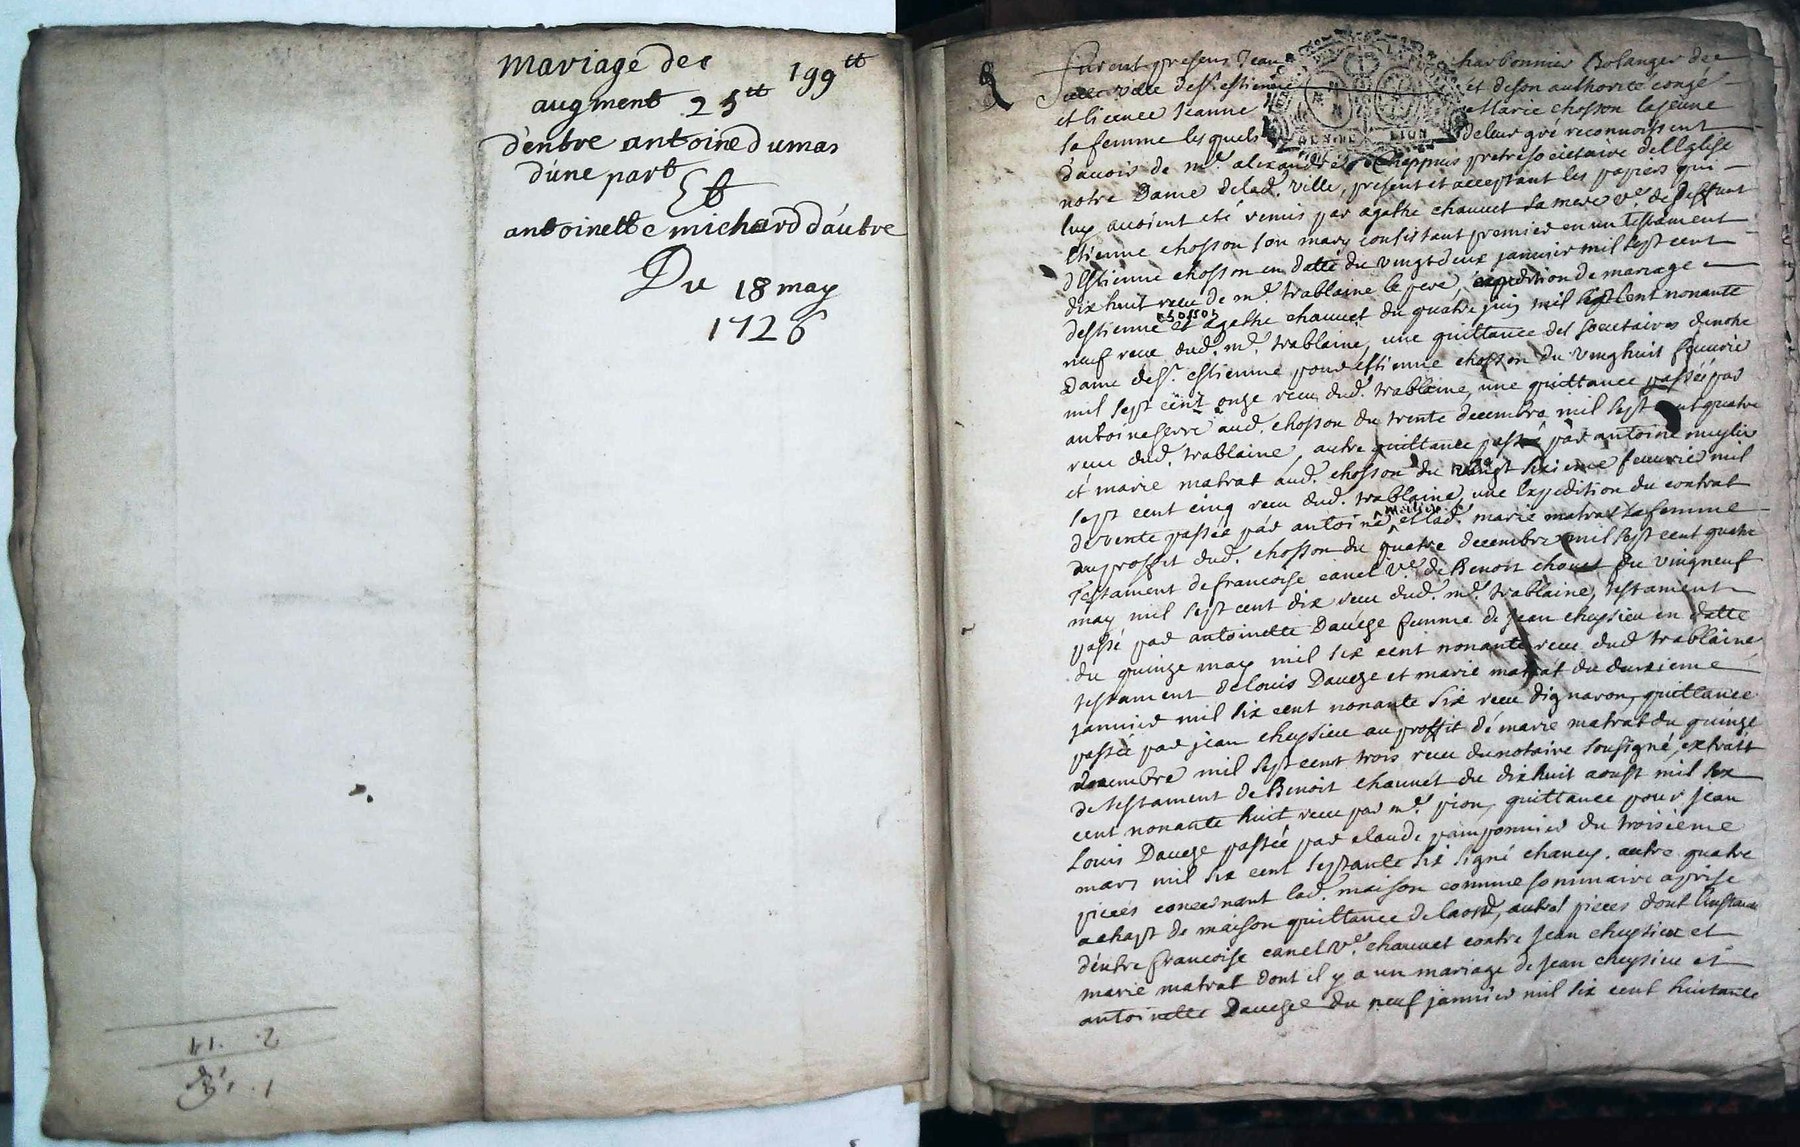 Mariage de 199tt
augment 25tt
d'entre antoine Dumas
d'une part
Et
antoinette michard d'autre
Du 18 may
1726
2. 14
Furent presens Jean Charbonnier Bolanger de
ville de St. estienne et de son authorité congé
et licence Jeanne Marie chosson la jeune
sa femme lesquels de leur gré reconnoissent
GEN. DE LION
d'avoir de mre. alexandre Chappuis pretre societaire de l'Eglise
notre Dame de lad. ville, present et acceptant les papiers qui
luy avoient eté remis par agathe chauvet sa mere ve. de deffunt
Etienne chosson son mary consistant premier en un testament
d'Estienne chosson en datte du vingt deux janvier mil sept cent
dix huit receu de me. trablaine le pere, expedition de mariage
d'estienne chosson et agathe chauvet du quatre juin mil six cent nonante
neuf receu dud. me. trablaine, une quittance des societaires de notre
Dame de St. estienne pour estienne chosson du vinghuit fevrier
mil sept cent onze receu dud. trablaine, une quittance passée par
antoine serre aud. chosson du trente decembre mil sept cent quatre
receu dud. trablaine, autre quittance passée par antoine
et marie matrat aud. chosson du vingt sixieme fevrier mil
sept cent cinq receu dud. trablaine, une Expedition du contrat
de vente passée par antoine et lad. marie matrat sa femme
au proffit dud. chosson du quatre decembre mil sept cent quatre
Testament de francoise canel ve. de Benoit chovet du vingneuf
may mil sept cent dix receu dud. me. trablaine, testament
passé par antoinette Dauege femme de Jean cheysieu en datte
du quinze may mil six cent nonante receu dud. trablaine
testament de Louis Dauege et marie matrat du deuxieme
janvier mil six cent nonante six receu dignaron, quittance
passée par jean cheysieu au proffit de marie matrat du quinze
decembre mil sept cent trois receu du notaire sousigné, extrait
de testament de Benoit chauvet du dix huit aoust mil six
cent nonante huit receu par me. pion, quittance pour Jean
Louis Dauege passée par claude pamponnier du troisieme
mars mil six cent septante six signé chaney. autre quatre
pieces concernant lad. maison comme sommaire aprise
achapt de maison quittance de laod, autres pieces dont l'instance
d'entre francoise canel ve. chauvet contre Jean cheysieu et
marie matrat dont il y a un mariage de Jean cheysieu et
antoinette Dauege du neuf janvier mil six cent huitante